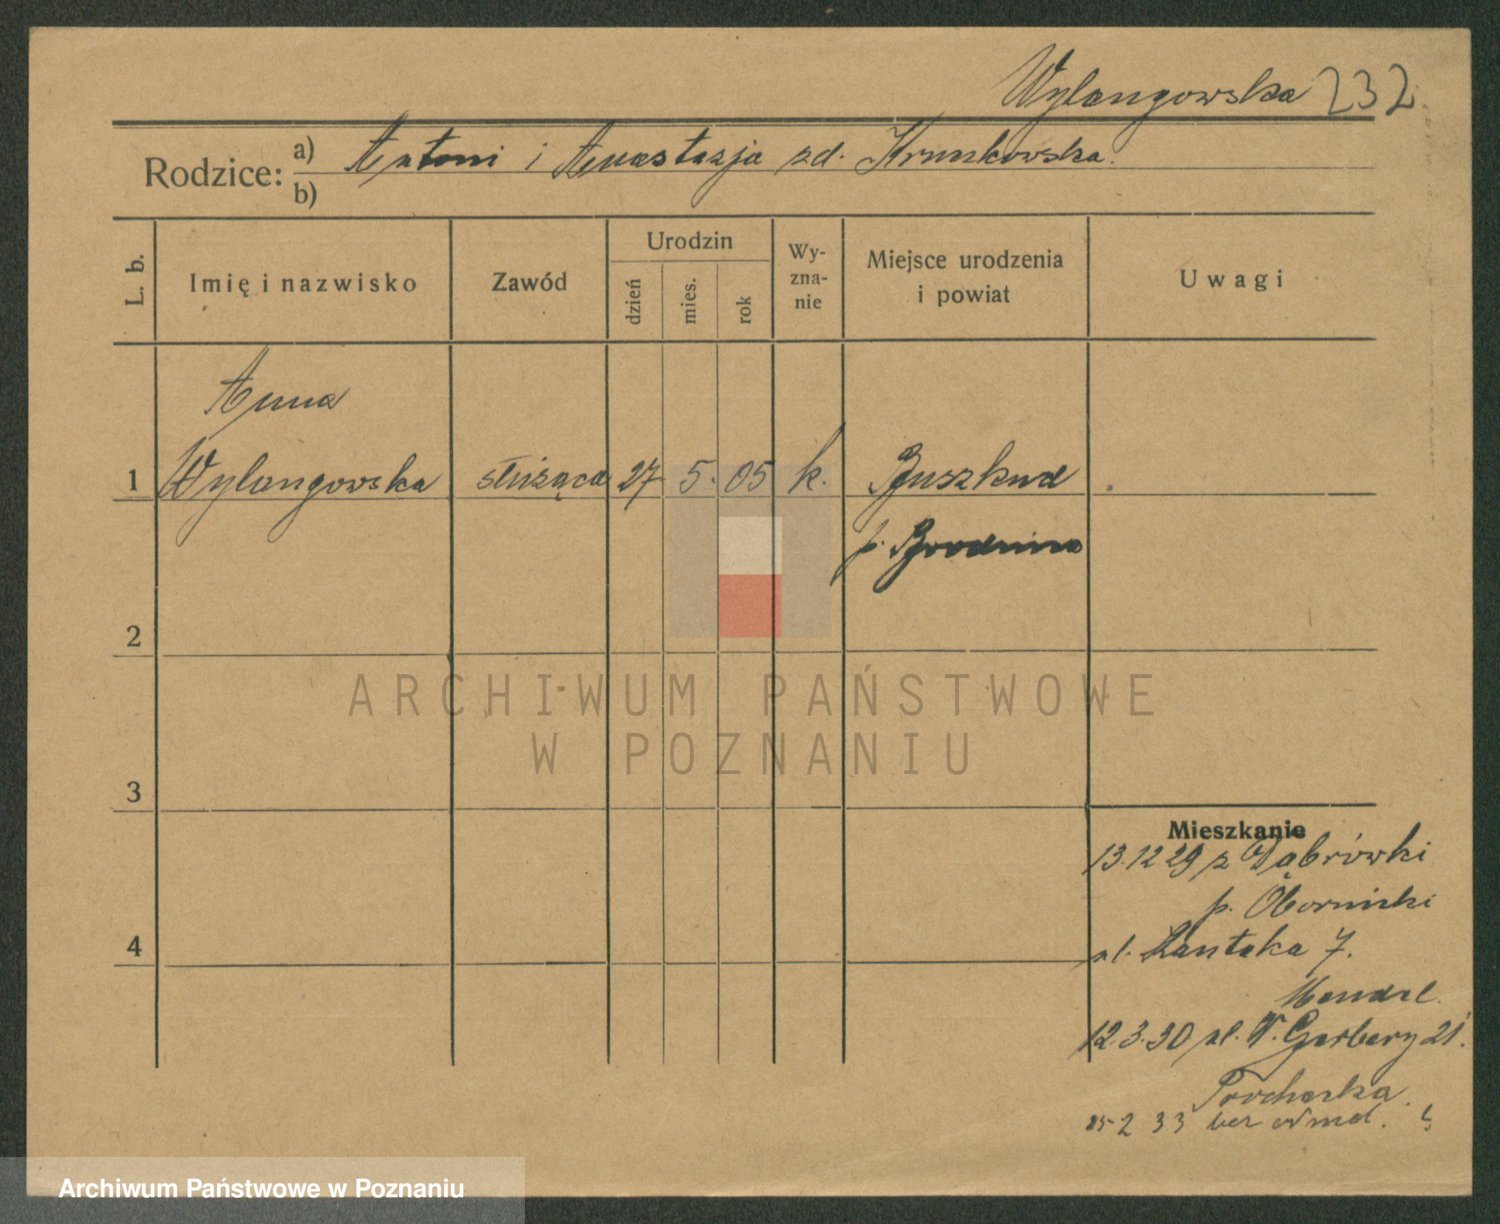 Wylangowska 232
Rodzice: a) Antoni i Anastazja zd. Kruszkowska.
b)
L. b. Imię i nazwisko Zawód Urodzin dzień mies. rok Wy-zna-nie Miejsce urodzenia i powiat Uwagi
Anna
1 Wylangowska służąca 27 5. 05 k. Buszkwa
p. Brodnica
2
ARCHIWUM PAŃSTWOWE
W POZNANIU
3
Mieszkanie
13.12 29 z Dąbrówki
p. Obornicki
4 ul. Łantaka 7.
Mendel.
12.3.30 ul. W. Garbary 21.
25 2 33 bez odmel.
Archiwum Państwowe w Poznaniu